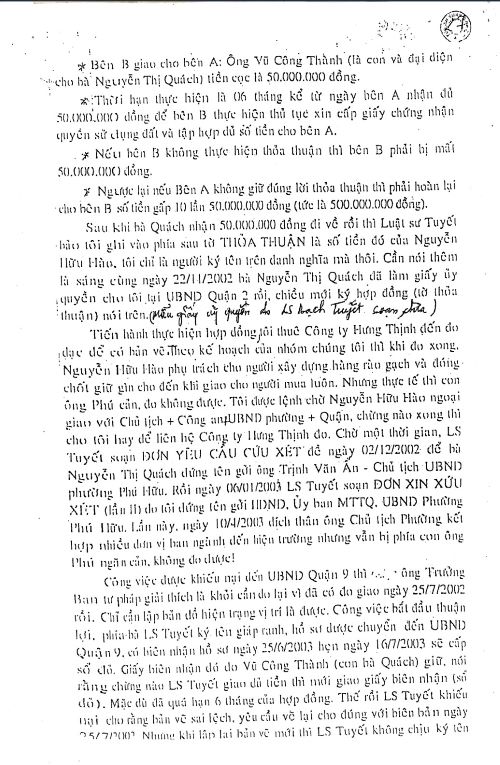 * Bên B giao cho bên A: Ông Vũ Công Thành (là con và đại diện
cho bà Nguyễn Thị Quách) tiền cọc là 50.000.000 đồng.
* Thời hạn thực hiện là 06 tháng kể từ ngày bên A nhận đủ
50.000.000 đồng để bên B thực hiện thủ tục xin cấp giấy chứng nhận
quyền sử dụng đất và tập hợp đủ số tiền cho bên A.
* Nếu bên B không thực hiện thỏa thuận thì bên B phải bị mất
50.000.000 đồng.
* Ngược lại nếu Bên A không giữ đúng lời thỏa thuận thì phải hoàn lại
cho bên B số tiền gấp 10 lần 50.000.000 đồng (tức là 500.000.000 đồng).
Sau khi bà Quách nhận 50.000.000 đồng đi về rồi thì Luật sư Tuyết
bảo tôi ghi vào phía sau tờ THỎA THUẬN là số tiền đó của Nguyễn
Hữu Hào, tôi chỉ là người ký tên trên danh nghĩa mà thôi. Cần nói thêm
là sáng cùng ngày 22/11/2002 bà Nguyễn Thị Quách đã làm giấy ủy
quyền cho tôi tại UBND Quận 2 rồi, chiều mới ký hợp đồng (tờ thỏa
thuận) nói trên. (mẫu giấy ủy quyền do LS Bạch Tuyết soạn thảo)
Tiến hành thực hiện hợp đồng, tôi thuê Công ty Hưng Thịnh đến đo
đạc để có bản vẽ. Theo kế hoạch của nhóm chúng tôi thì khi đo xong,
Nguyễn Hữu Hào phụ trách cho người xây dựng hàng rào gạch và đóng
chốt giữ gìn cho đến khi giao cho người mua luôn. Nhưng thực tế thì con
ông Phú cản, đo không được. Tôi được lệnh chờ Nguyễn Hữu Hào ngoại
giao với Chủ tịch + Công an, UBND phường + Quận, chừng nào xong thì
cho tôi hay để liên hệ Công ty Hưng Thịnh đo. Chờ một thời gian, LS
Tuyết soạn ĐƠN YÊU CẦU CỨU XÉT đề ngày 02/12/2002 để bà
Nguyễn Thị Quách đứng tên gởi ông Trịnh Văn Ẩn - Chủ tịch UBND
phường Phú Hữu. Rồi ngày 06/01/2003 LS Tuyết soạn ĐƠN XIN XỨU
XÉT (lần II) do tôi đứng tên gởi HĐND, Ủy ban MTTQ, UBND Phường
Phú Hữu. Lần này, ngày 10/4/2003 đích thân ông Chủ tịch Phường kết
hợp nhiều đơn vị ban ngành đến hiện trường nhưng vẫn bị phía con ông
Phú ngăn cản, không đo được!
Công việc được khiếu nại đến UBND Quận 9 thì ông Trưởng
Ban tư pháp giải thích là khỏi cần đo lại vì đã có đo giao ngày 25/7/2002
rồi. Chỉ cần lập bản đồ hiện trạng vị trí là được. Công việc bắt đầu thuận
lợi, phía bà LS Tuyết ký tên giáp ranh, hồ sơ được chuyển đến UBND
Quận 9, có biên nhận hồ sơ ngày 25/6/2003 hẹn ngày 16/7/2003 sẽ cấp
sổ đỏ. Giấy biên nhận đó do Vũ Công Thành (con bà Quách) giữ, nói
rằng chừng nào LS Tuyết giao đủ tiền thì mới giao giấy biên nhận (sổ
đỏ). Mặc dù đã quá hạn 6 tháng của hợp đồng. Thế rồi LS Tuyết khiếu
nại cho rằng bản vẽ sai lệch, yêu cầu vẽ lại cho đúng với biên bản ngày
25/7/2002. Nhưng khi lập lại bản vẽ mới thì LS Tuyết không chịu ký tên